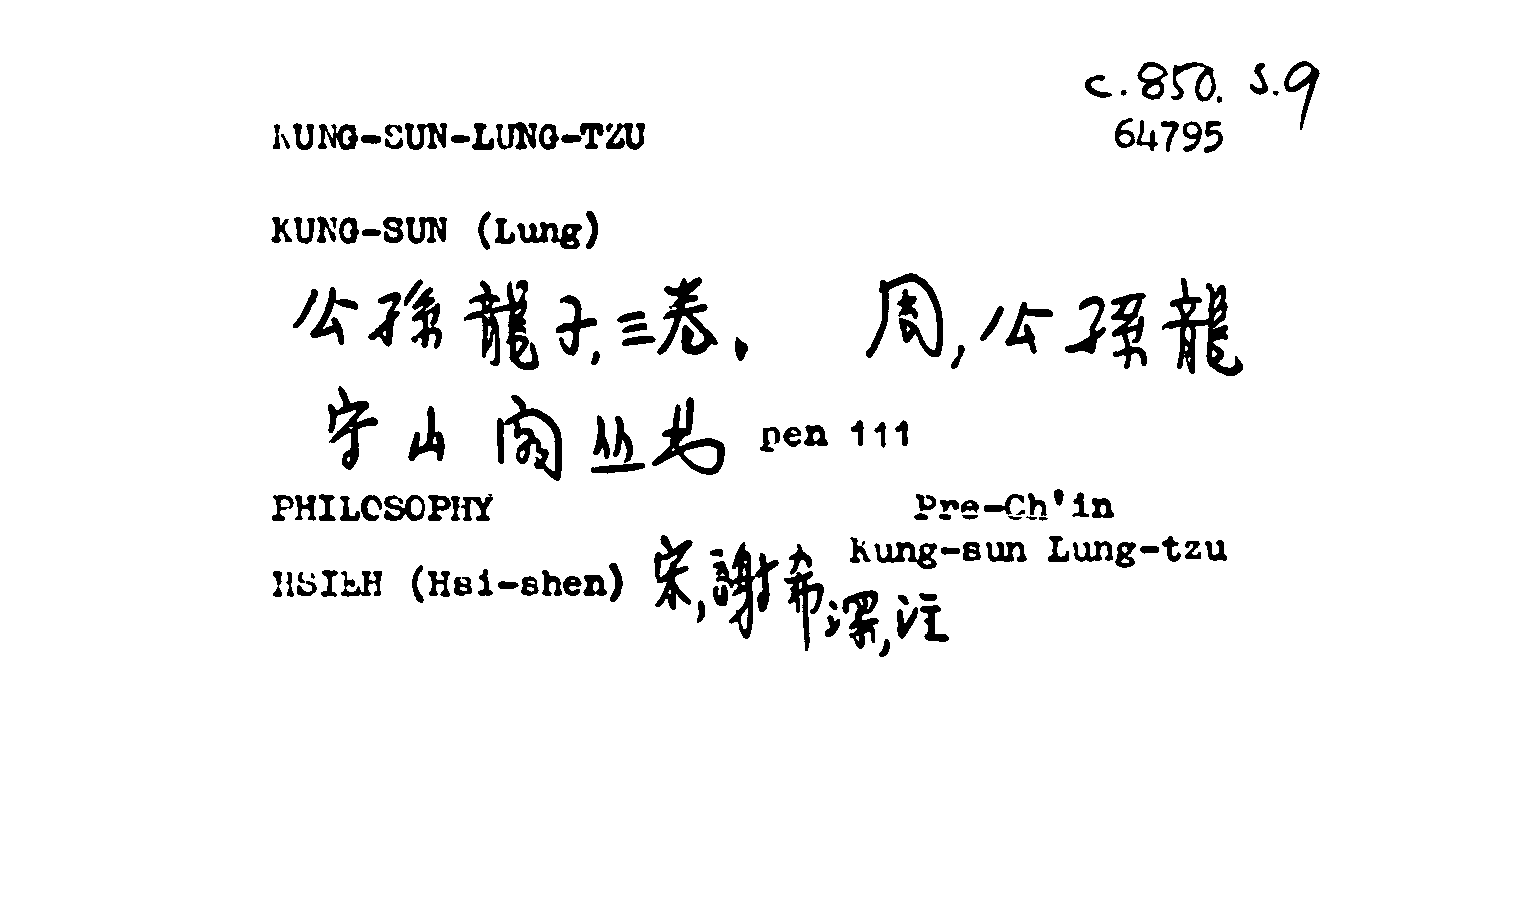 c.850. s.9
KUNG-SUN-LUNG-TZU
64795
KUNG-SUN (Lung)
公孫龍子,三卷. 周,公孫龍
守山閣丛书 pen 111
PHILOSOPHY Pre-Ch'in
Kung-sun Lung-tzu
HSIEH (Hsi-shen) 宋,謝希深,注